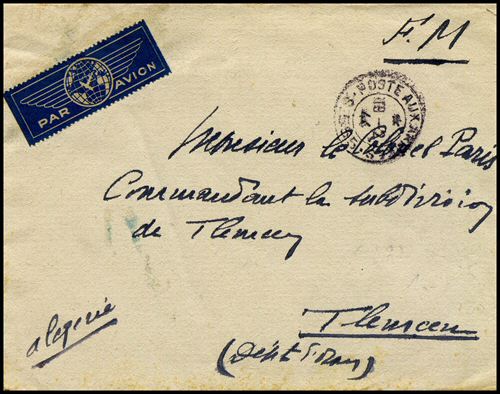 F.M
PAR AVION
POSTE AUX ARMEES
44
Monsieur le Colonel Paris
Commandant la subdivision
de Tlemcen
Algérie
Tlemcen
(Dépt Oran)